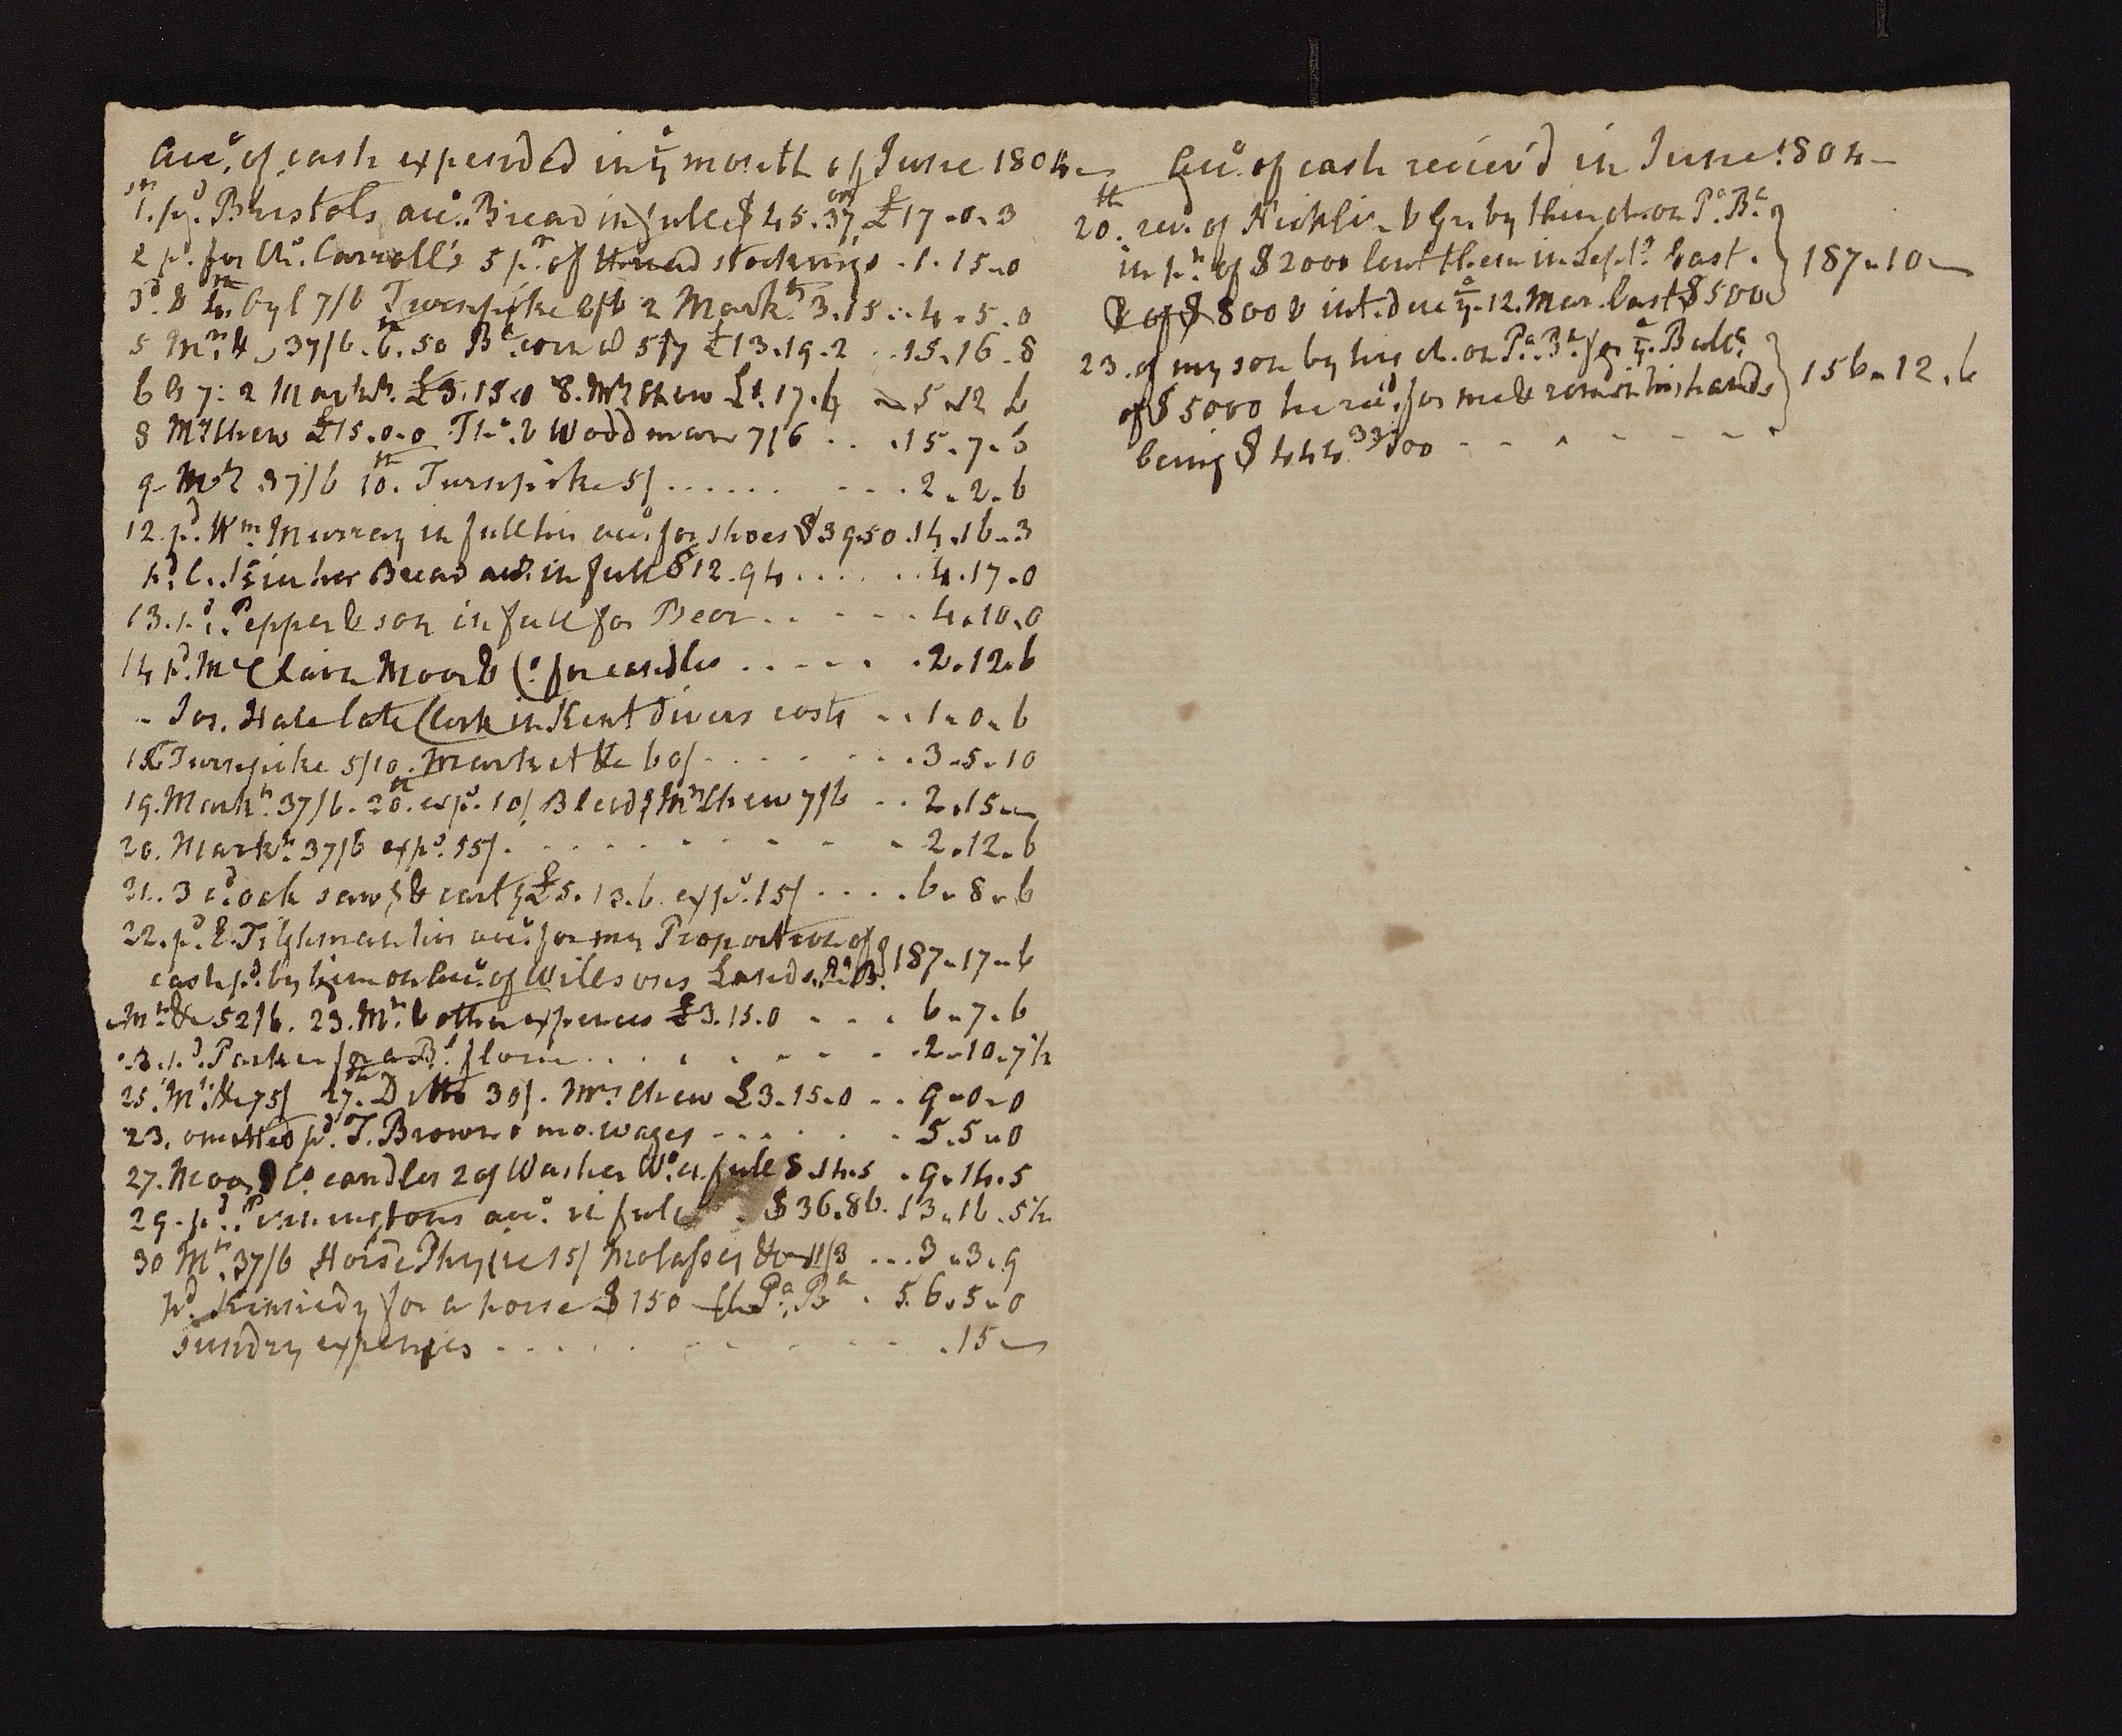 Accot. of cash expended in ye month of June 1804
1st. pd. Bristols acct. Bread in full $45.37 £17-0-3
2 pd. for Ch. Carroll's 5 pr. of thread stockings - 1-15-0
3d. & 4th. 7/6 Turnpike 2 Markt. 3.15 .. 4-5-0
5 Mt. &c 37/6. 6th. 50 Bl. corn @ 5/7 £13.19.2 .. 15-16-8
6 & 7: 2 Markts. £3.15.0 8. Mrs Chew £1.17.6 5-12-6
8 Mrs Chew £15.0.0 & Woodman 7/6 ... 15-7-6
9 Mkt 37/6 10th. Turnpike 5/ ...... 2-2-6
12. pd. Wm. Murray in full his acct. for shoes $39.50. 14.16-3
pd. her Bread acct. in full $12.94 ...... 4-17-0
13. pd. Pepper & son in full for Beer ..... 4.10.0
14 pd. McClain Moor & Co. for candles ..... 2.12.6
- Jos. Hale late Clerk in Kent divers costs .. 1-0-6
Turnpike 5/10. Market &c 60/ ....... 3-5-10
19. Markt. 37/6. 20th. exps. 10/ Bleedg Mrs Chew 7/6 .. 2.15-
20. Markt. 37/6 exps. 15/. ........ 2.12.6
21. 3 cd. oak sawg & cartg £5.13.6. exps. 15/ .... 6-8-6
22. pd. E. Tilghman his acct. for my Proportion of
cash pd. by him on Acct. of Willsons Lands. Pa. B. } 187-17-6
Mt. &c 52/6. 23. Mt. & other expences £3.15.0 ... 6-7-6
23. pd. Parker for a Bl. flour ....... 2-10-7½
25. Mt. &c 75/ 27th. Ditto 30/. Mrs Chew £3-15-0 .. 9-0-0
23. omitted pd. T. Brown mo. wages ...... 5.5-0
27. Moor & Co. candles 2 of Washer Wo. in full $ 14.5 . 9.14.5
29. pd. Penningtons acct. in full . $36.86. 13.16.5½
30 Mt. 37/6 Horse Physic 15/ Molasses &c 11/3 ... 3-3.9
pd. Kennedy for a horse $150 Ch Pa. Ba. 56.5-0
Sundry expenses .......... .15-
Acct. of cash reciev'd in June 1804-
20th. recd. of Nicklin & Gr. by their ch. on Pa. Ba.
in pt. of $2000 lent them in Sept. last.
& of $800 & int. due ye. 12. Mar. last $500 } 187-10-
23. of my son by his ch. on Pa. Ba. for ye. Balce.
of $5000 he recd. for me & remn in his hands
being $444 33/100 ------- } 156-12.6